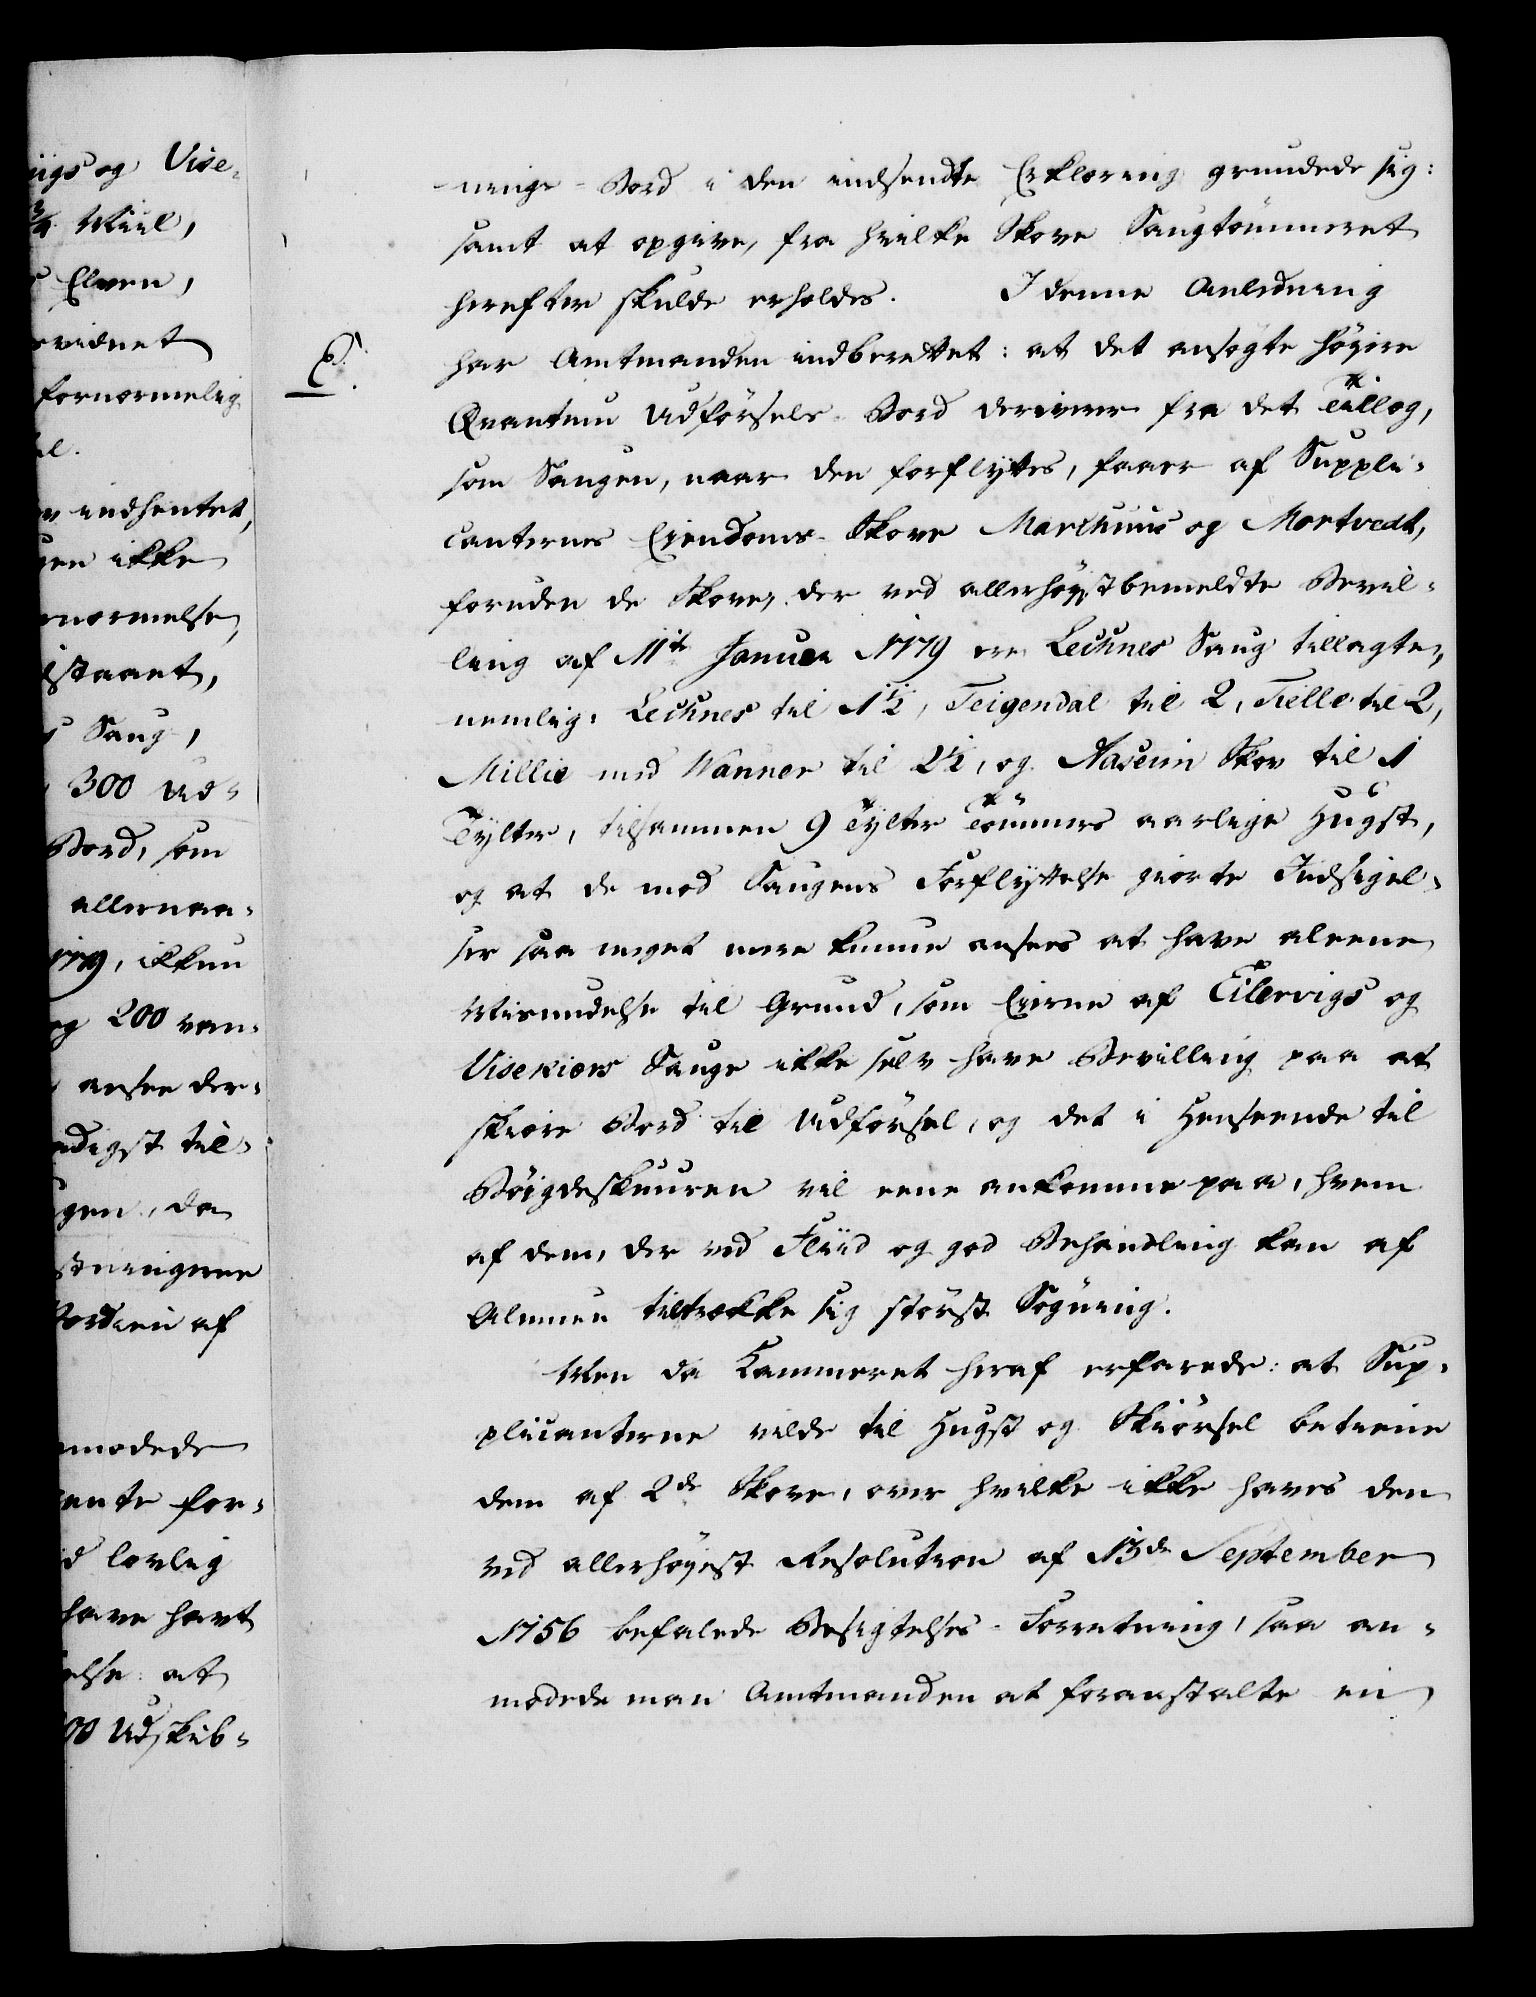 iigs og Vise-
¾ Miil,
Elven,
vidnet
fornærmelig
el.
indhentet,
en ikke
nærmelse,
staaet,
Saug,
300 Ud-
Bord, som
allernaa-
1779, ikkun
og 200 van-
ansee der-
digst til-
gen, da
Bordene af
modede
ente for-
d lovlig
have havt
else: at
00 Udskib-
nings-Bord i den indsendte Erklæring grundede sig:
samt at opgive, fra hvilke Skove Saugtømmeret
herefter skulde erholdes. I denne Anledning
har Amtmanden indberettet: at det ansøgte høyere
Qvantum Udførsels-Bord deriverer fra det Tillæg,
som Saugen, naar den forflyttes, faaer af Suppli-
canternes Eiendoms-Skove Marthuus og Mortvedt,
foruden de Skove, der ved allerhøystbemeldte Bevil-
ling af 11te Januar 1779 ere Lechnes Saug tillagte,
nemlig: Lechnes til 1½, Teigendal til 2, Tielle til 2,
Millie med Wanner til 2½, og Aaseim Skov til 1
Tylter, tilsammen 9 Tylter Tømmers aarlige Hugst,
og at de mod Saugens Forflyttelse giorte Indsigel-
ser saa meget mere kunne ansees at have aleene
Misundelse til Grund, som Eierne af Eilervigs og
Visekiærs Sauge ikke selv have Bevilling paa at
skiære Bord til Udførsel, og det i Henseende til
Bøigdeskuuren vil eene ankomme paa, hvem
af dem, der ved Fliid og god Behandling kan af
Almuen tiltrække sig størst Søgning.
Men da Kammeret heraf erfarede: at Sup-
plicanterne vilde til Hugst og Skiørsel betiene
dem af 2de Skove, over hvilke ikke haves den
ved allerhøyest Resolution af 13de September
1756 befalede Besigtelses-Forretning, saa an-
modede man Amtmanden at foranstalte en